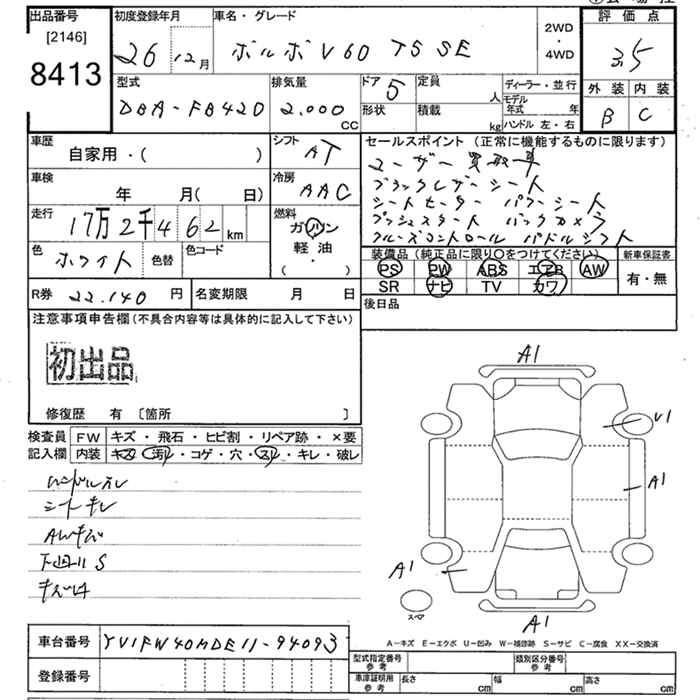 出品番号
[2146]
8413
初度登録年月
26 12月
車名・グレード
ボルボ V60 T5 SE
2WD
・
4WD
評価点
3.5
型式
DBA-FB420
排気量
2.000
cc
ドア 5
形状
定員
人
積載
kg
ディーラー・並行
モデル年式 年
ハンドル 左・右
外装 内装
B C
車歴
自家用・( )
シフト
AT
車検
年 月( 日)
冷房
AAC
走行
17万2千462 km
燃料
ガソリン
軽油
( ・ )
色
ホワイト
色替
色コード
R券 22.140 円
名変期限 月 日
セールスポイント (正常に機能するものに限ります)
ユーザー買取車
ブラックレザーシート
シートヒーター パワーシート
プッシュスタート バックカメラ
クルーズコントロール パドルシフト
装備品 (純正品に限り○をつけてください)
PS PW ABS エアB AW
SR ナビ TV カワ
新車保証書
有・無
後日品
注意事項申告欄 (不具合内容等は具体的に記入して下さい)
初出品
修復歴 有 〔箇所 〕
検査員
記入欄
FW キズ・飛石・ヒビ割・リペア跡・×要
内装 キズ・汚れ・コゲ・穴・スレ・キレ・破レ
ハンドルスレ
シートキレ
AWキズ
下回りS
A1
U1
A1
A1
A1
スペア
A-キズ E-エクボ U-凹み W-補修跡 S-サビ C-腐食 XX-交換済
車台番号 YV1FW40MDE11-94093
登録番号
型式指定番号
参考
類別区分番号
参考
車庫証明用
参考
長さ cm
幅 cm
高さ cm